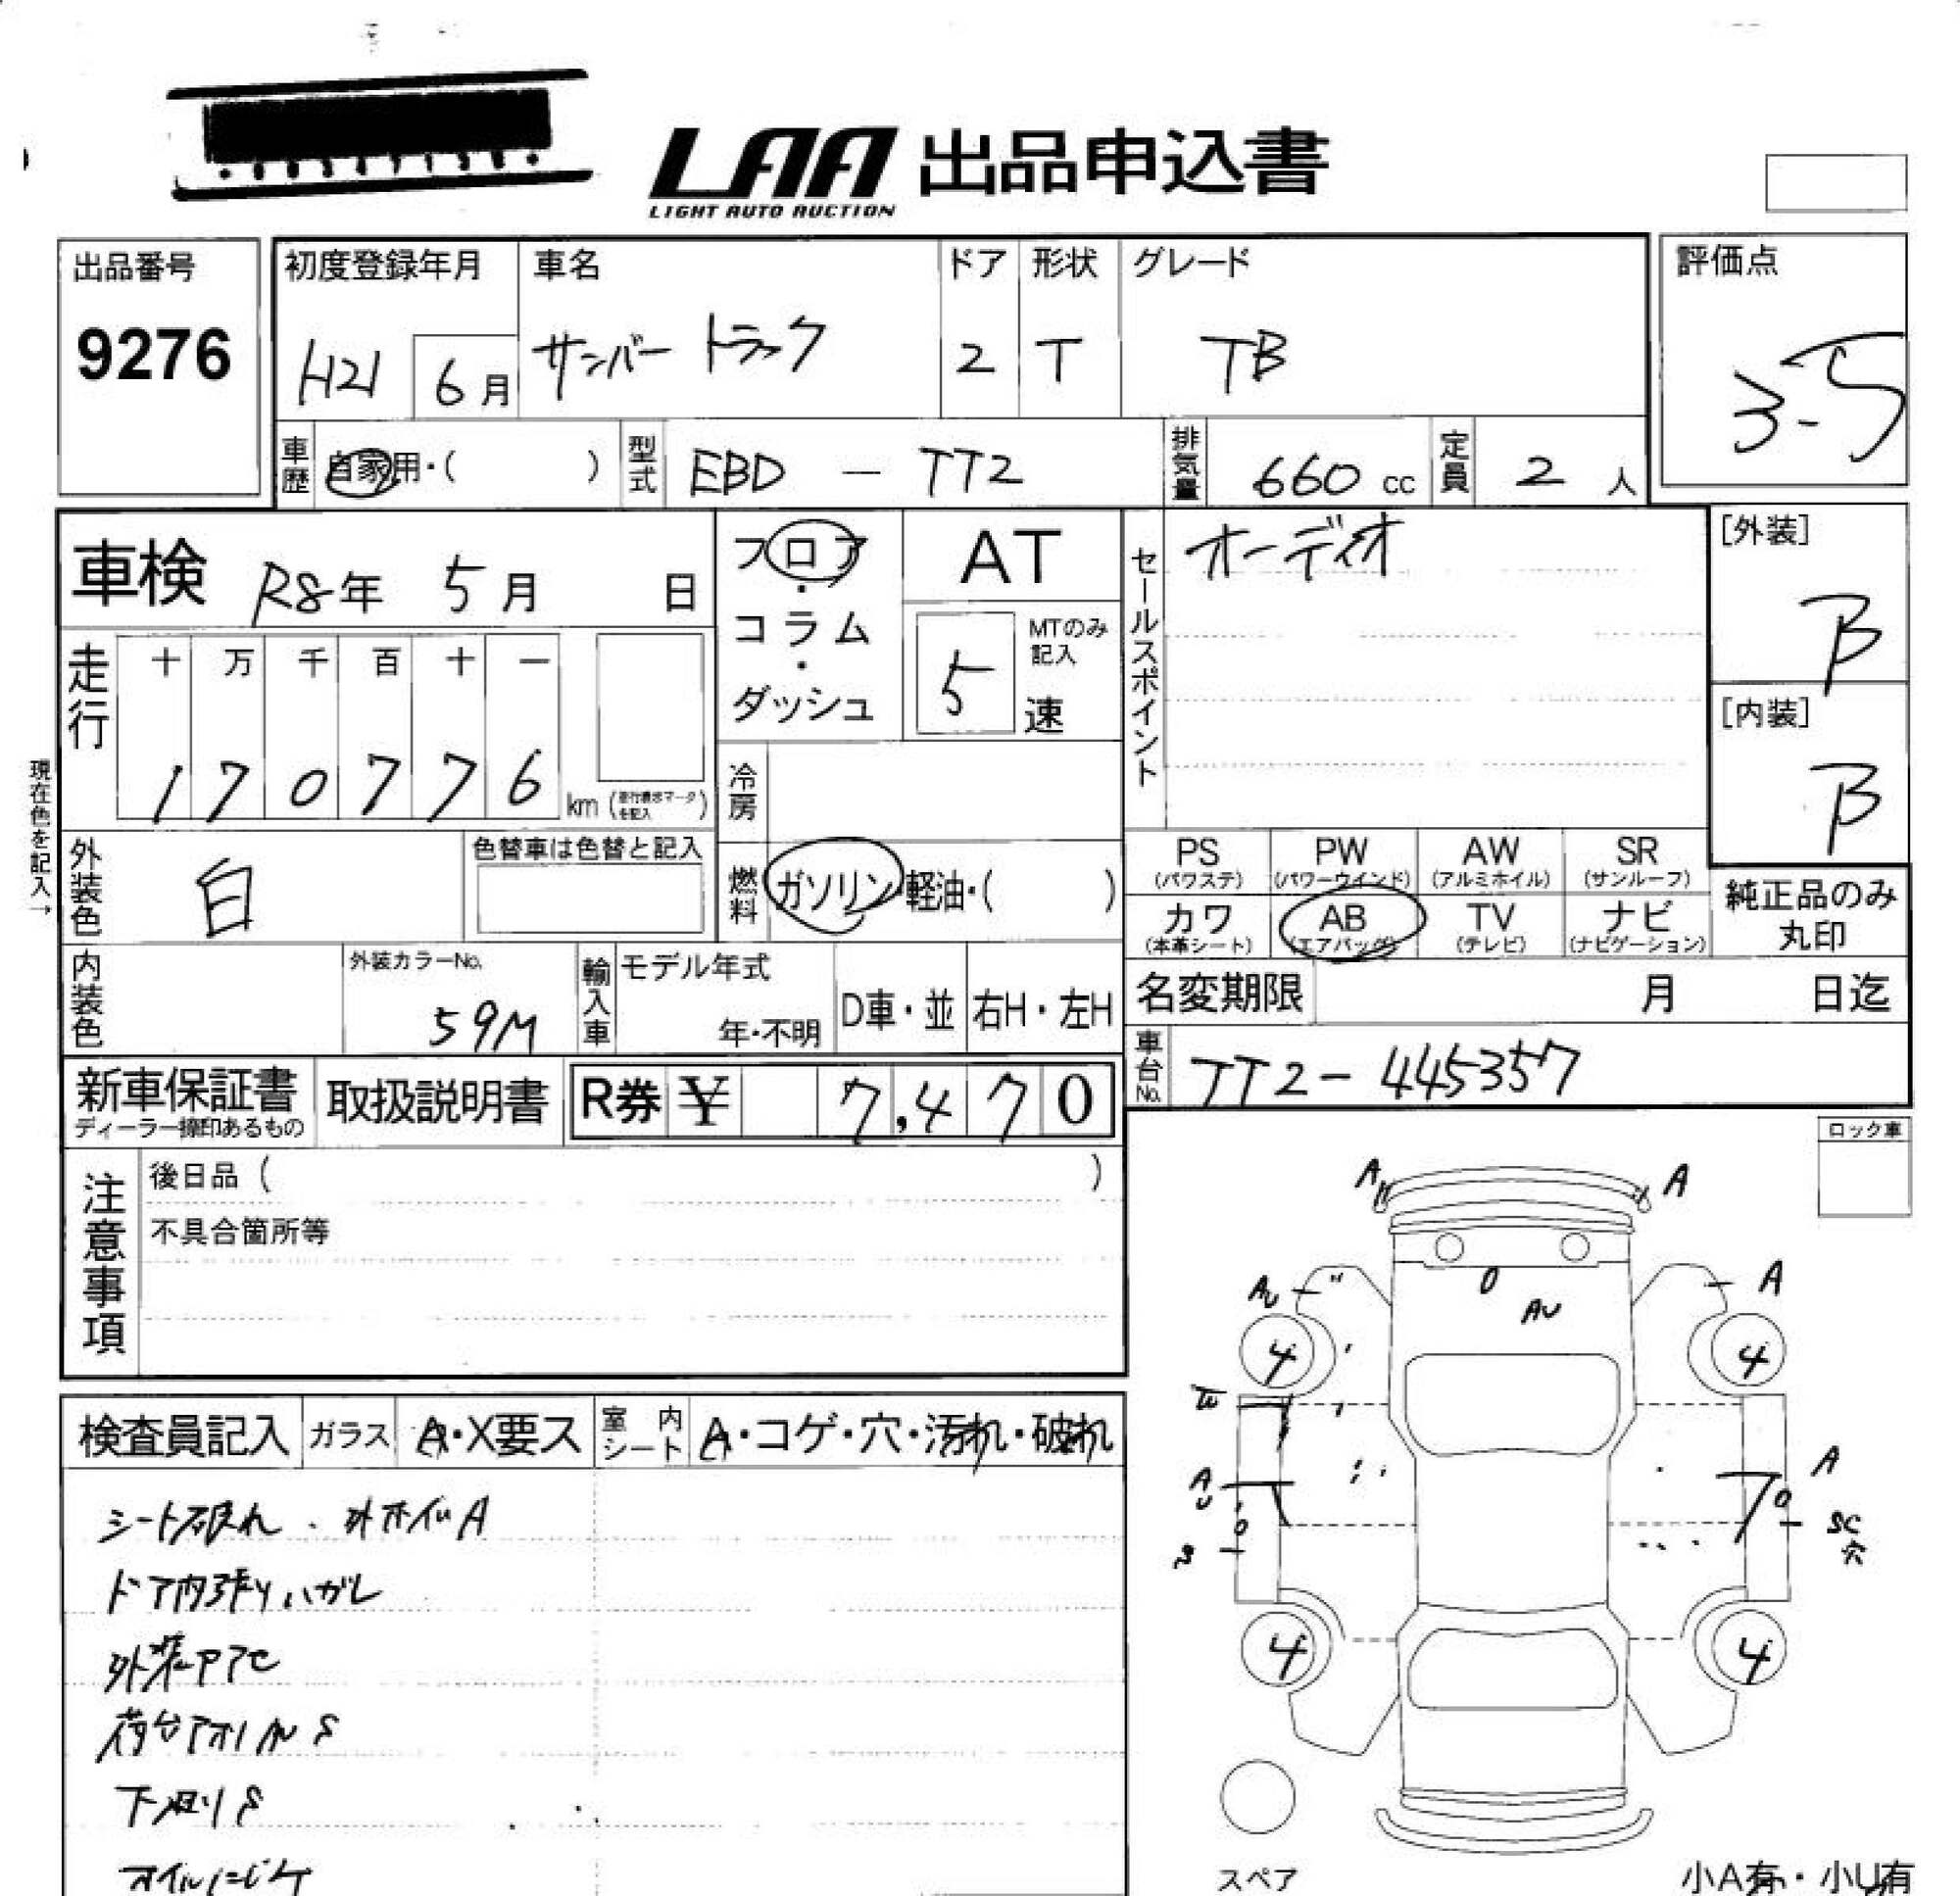 LAA 出品申込書
LIGHT AUTO AUCTION
出品番号
9276
初度登録年月 車名 ドア 形状 グレード
H21 6月 サンバートラック 2 T TB
評価点
3.5
車歴 自家用・( ) 型式 EBD - TT2 排気量 660 cc 定員 2 人
車検 R8年 5月 日
フロア・コラム・ダッシュ
AT
5 速
MTのみ記入
セールスポイント
オーディオ
[外装]
B
[内装]
B
現在色を記入→
走行
十 万 千 百 十 一
1 7 0 7 7 6 km (走行表示マークを記入)
冷房
燃料 ガソリン・軽油・( )
外装色 白
色替車は色替と記入
PS (パワステ) PW (パワーウインド) AW (アルミホイル) SR (サンルーフ)
カワ (本革シート) AB (エアバッグ) TV (テレビ) ナビ (ナビゲーション)
純正品のみ丸印
内装色
外装カラーNo.
59M
輸入車 モデル年式
年・不明 D車・並 右H・左H
名変期限 月 日迄
車台No. TT2-445357
新車保証書
ディーラー捺印あるもの
取扱説明書
R券 ¥ 7,470
注意事項
後日品 ( )
不具合箇所等
ロック車
A A
AU A
0
AU
4 4
A
U
A
0 0
SC
穴
4 4
スペア
小A有・小U有
検査員記入 ガラス A・X要ス 室内シート A・コゲ・穴・汚れ・破れ
シート破れ . 外ホイルA
ドア内張りハガレ
外装ヤケ
荷台アオリ S
下廻りS
オイルにじみ